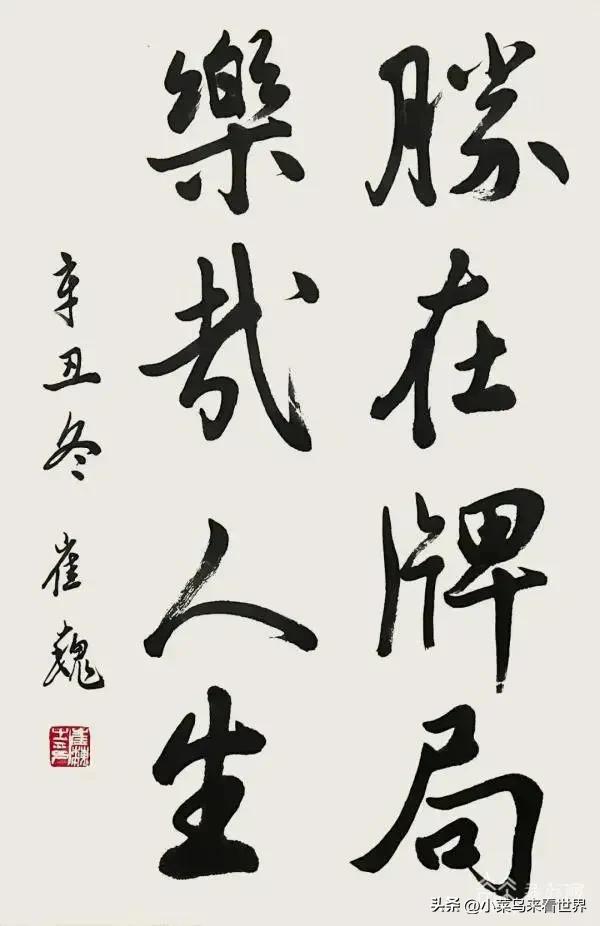 勝在牌局
樂哉人生
辛丑冬 崔魏
头条 @小菜乌来看世界